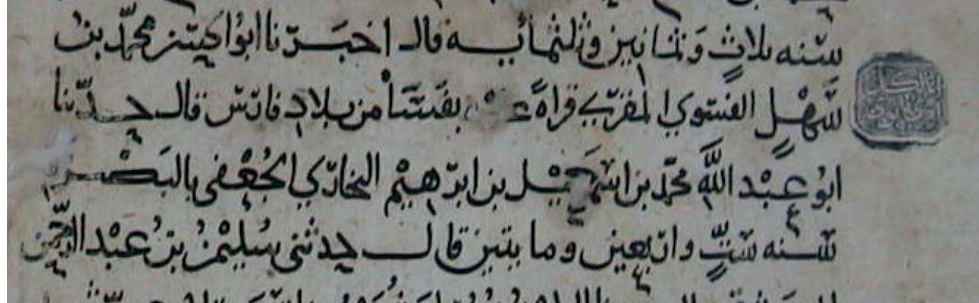 سنه ثلاث وثمانين وثلثمائه قال اخبرنا ابو الحسن محمد بن
سهل الفسوي المقرئ قراة بفسا من بلاد فارس قال حدثنا
ابو عبد الله محمد بن اسمعيل بن ابرهيم البخاري الجعفي بالبصره
سنه ست واربعين ومايتين قال حدثني سليمن بن عبد الرحمن